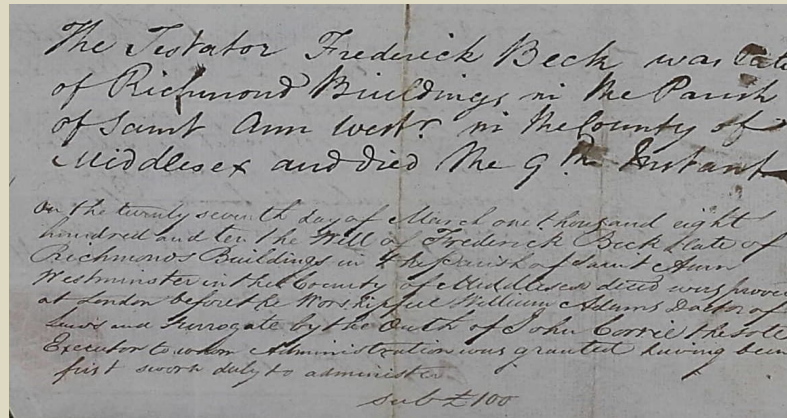 The Testator Frederick Beck was late
of Richmond Buildings in the Parish
of Saint Ann Westr. in the County of
Middlesex and died the 9th Instant
On the twenty seventh day of March one thousand eight
hundred and ten the Will of Frederick Beck late of
Richmonds Buildings in the Parish of Saint Ann
Westminster in the County of Middlesex decd was proved
at London before the Worshipful William Adams Doctor of
Laws and Surrogate by the Oath of John Corrie the sole
Executor to whom Administration was granted having been
first sworn duly to administer
Sub £100